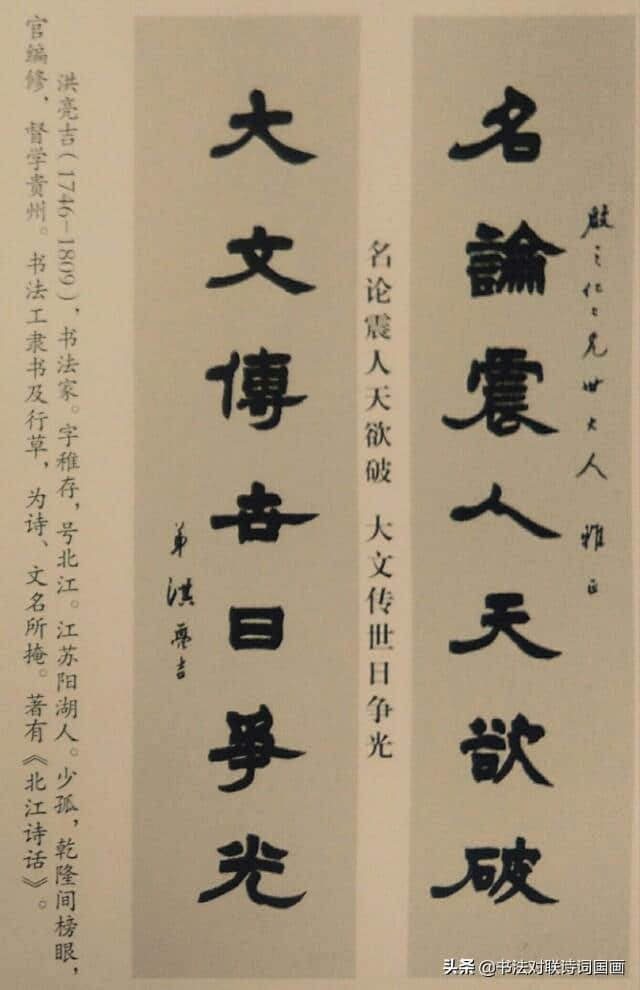 之仁兄世大人 雅正
名論震人天欲破
名论震人天欲破 大文传世日争光
大文傳世日爭光
弟洪亮吉
洪亮吉(1746—1809)，书法家。字稚存，号北江。江苏阳湖人。少孤，乾隆间榜眼，
官编修，督学贵州。书法工隶书及行草，为诗、文名所掩。著有《北江诗话》。
头条 @书法对联诗词国画